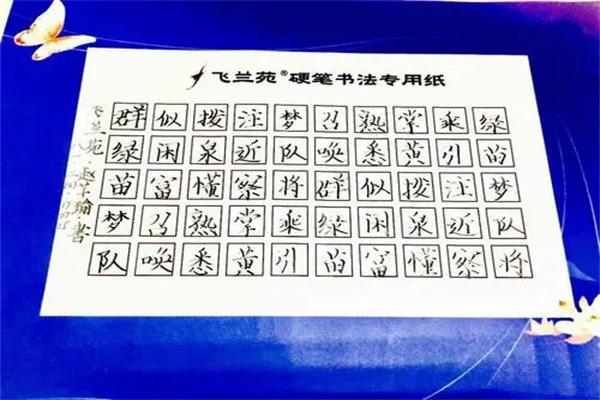 飞兰苑®硬笔书法专用纸
群似拨注梦召熟掌乘绿
绿闲泉近队唤悉黄引苗
苗富懂察将群似拨注梦
梦召熟掌乘绿闲泉近队
队唤悉黄引苗富懂察将
飞兰苑